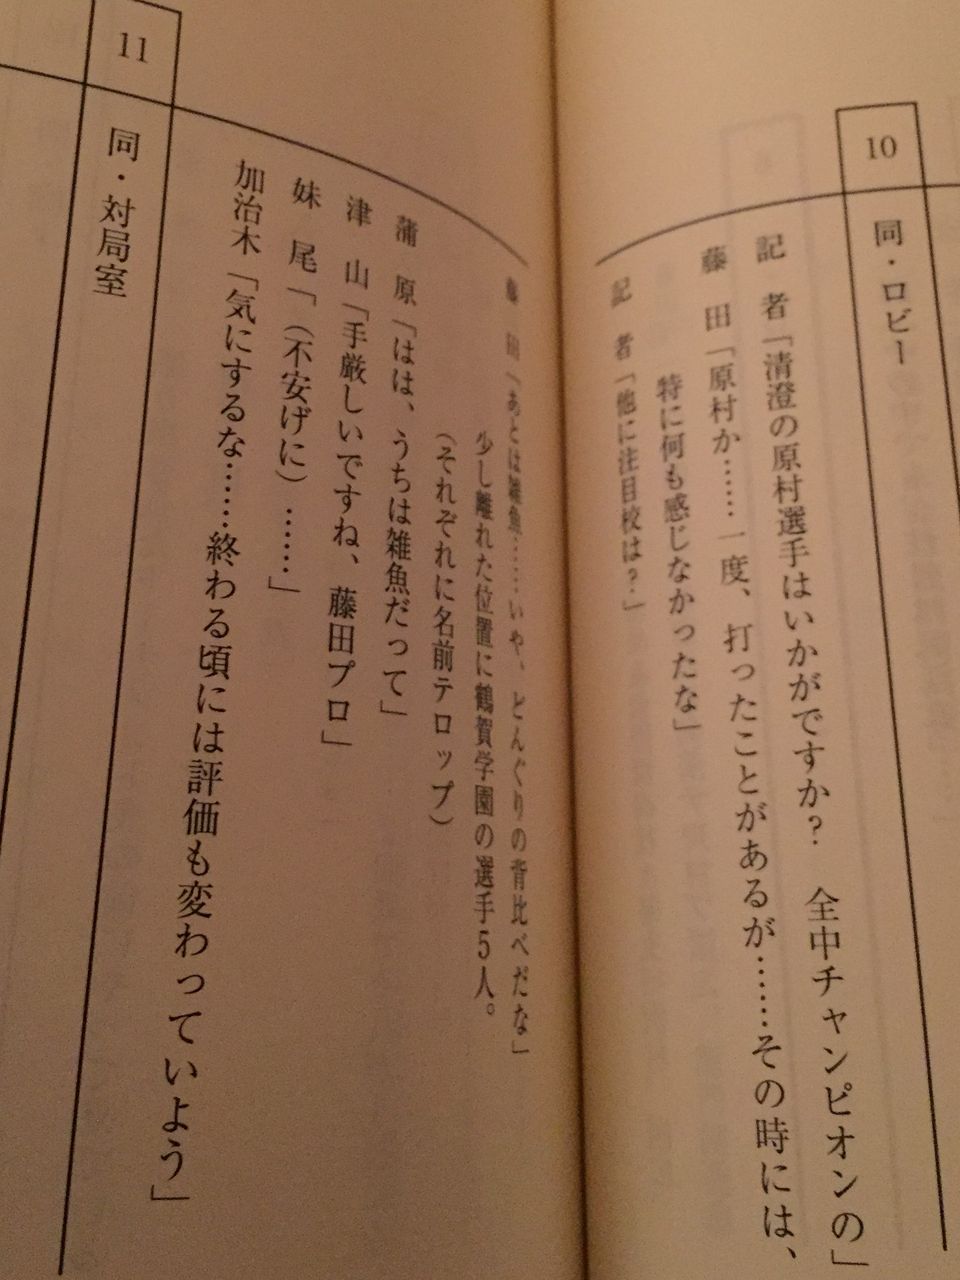 10
同・ロビー
記者「清澄の原村選手はいかがですか？　全中チャンピオンの」
藤田「原村か……一度、打ったことがあるが……その時には、
特に何も感じなかったな」
記者「他に注目校は？」
藤田「あとは雑魚……いや、どんぐりの背比べだな」
少し離れた位置に鶴賀学園の選手５人。
（それぞれに名前テロップ）
蒲原「はは、うちは雑魚だって」
津山「手厳しいですね、藤田プロ」
妹尾「（不安げに）……」
加治木「気にするな……終わる頃には評価も変わっていよう」
11
同・対局室